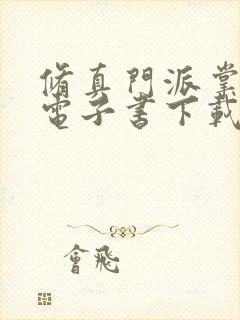 脩真門派掌
電子書下載
會飛